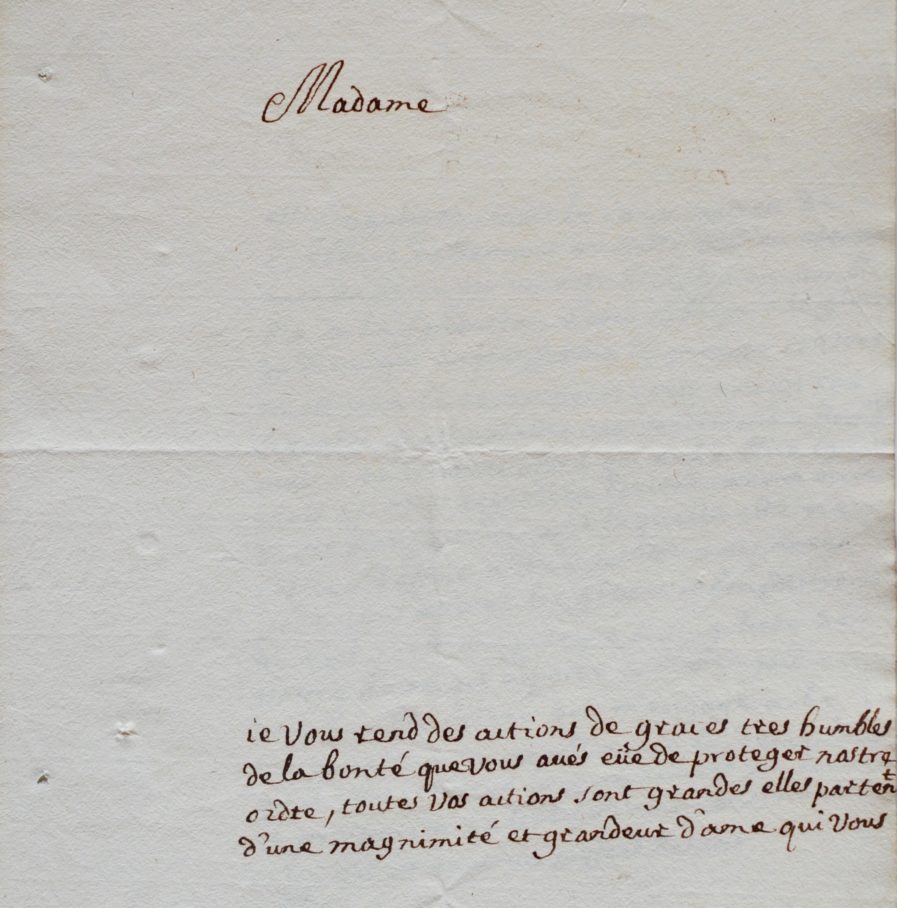 Madame
ie vous rend des actions de graces tres humbles
de la bonté que vous aués eüe de proteger nostre
ordre, toutes vos actions sont grandes elles partent
d'une magnimité et grandeur d'ame qui vous